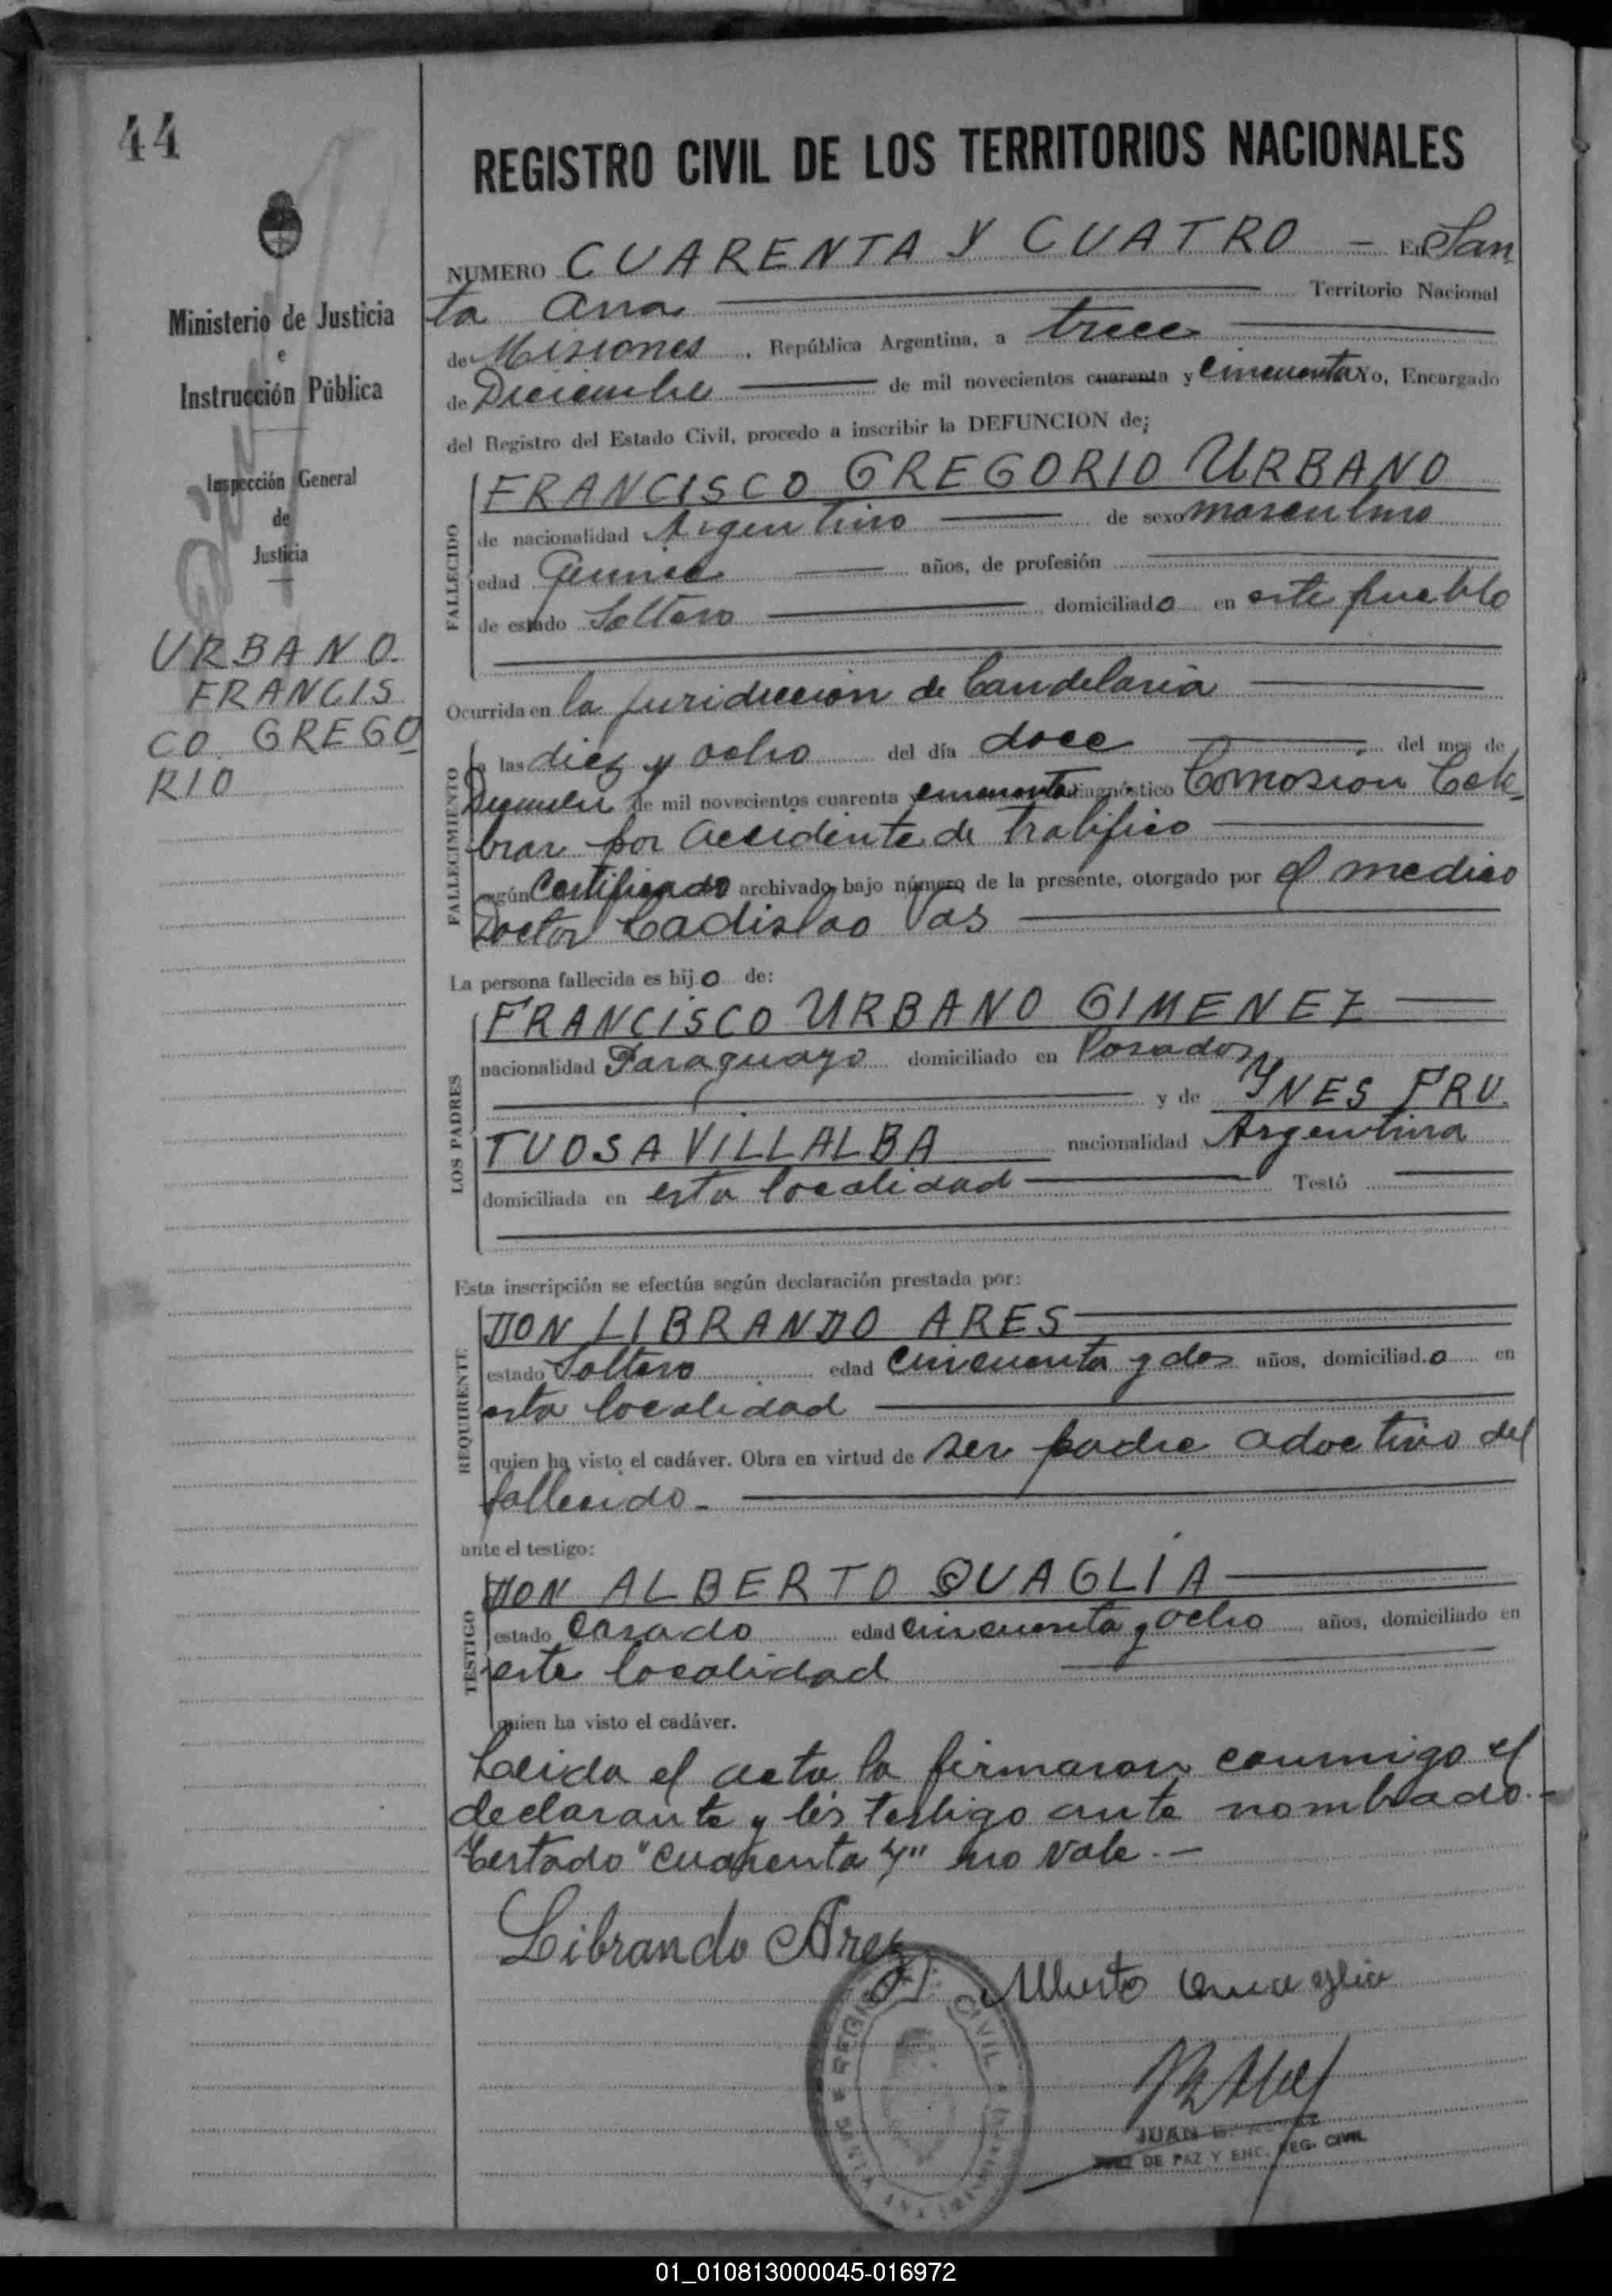 44
REGISTRO CIVIL DE LOS TERRITORIOS NACIONALES
NUMERO CUARENTA Y CUATRO — En San
ta Ana Territorio Nacional
de Misiones, República Argentina, a trece
de Diciembre de mil novecientos cuarenta y cincuenta Yo, Encargado
del Registro del Estado Civil, procedo a inscribir la DEFUNCION de;
Ministerio de Justicia
e
Instrucción Pública
Inspección General
de
Justicia
URBANO.
FRANCIS
CO GREGO
RIO
FALLECIDO
FRANCISCO GREGORIO URBANO
de nacionalidad Argentino de sexo masculino
edad Quince años, de profesión
de estado Soltero domiciliado en este pueblo
Ocurrida en la juridiccion de Candelaria
FALLECIMIENTO
a las diez y ocho del día doce del mes de
Diciembre de mil novecientos cuarenta y cincuenta diagnóstico Comosión Cele
brar por accidente de trafifico
según Certificado archivado bajo número de la presente, otorgado por el medico
Doctor Ladislao Vas
La persona fallecida es hijo de:
LOS PADRES
FRANCISCO URBANO GIMENEZ
nacionalidad Paraguayo domiciliado en Posadas,
y de YNES FRU.
TUOSA VILLALBA nacionalidad Argentina
domiciliada en esta localidad Testó
Esta inscripción se efectúa según declaración prestada por:
REQUIRENTE
DON LIBRANDO ARES
estado Soltero edad cincuenta y dos años, domiciliado en
esta localidad
quien ha visto el cadáver. Obra en virtud de ser padre adoctivo del
fallecido.
ante el testigo:
TESTIGO
DON ALBERTO QUAGLIA
estado Casado edad cincuenta y ocho años, domiciliado en
este localidad
quien ha visto el cadáver.
Leida el acta la firmaron conmigo el
declarante y les testigo ante nombrado.-
Testado "cuarenta y" no vale.-
Librando Arez
Alberto Quaglia
CIVIL
JUAN B.
JUEZ DE PAZ Y ENC. REG. CIVIL
01_010813000045-016972